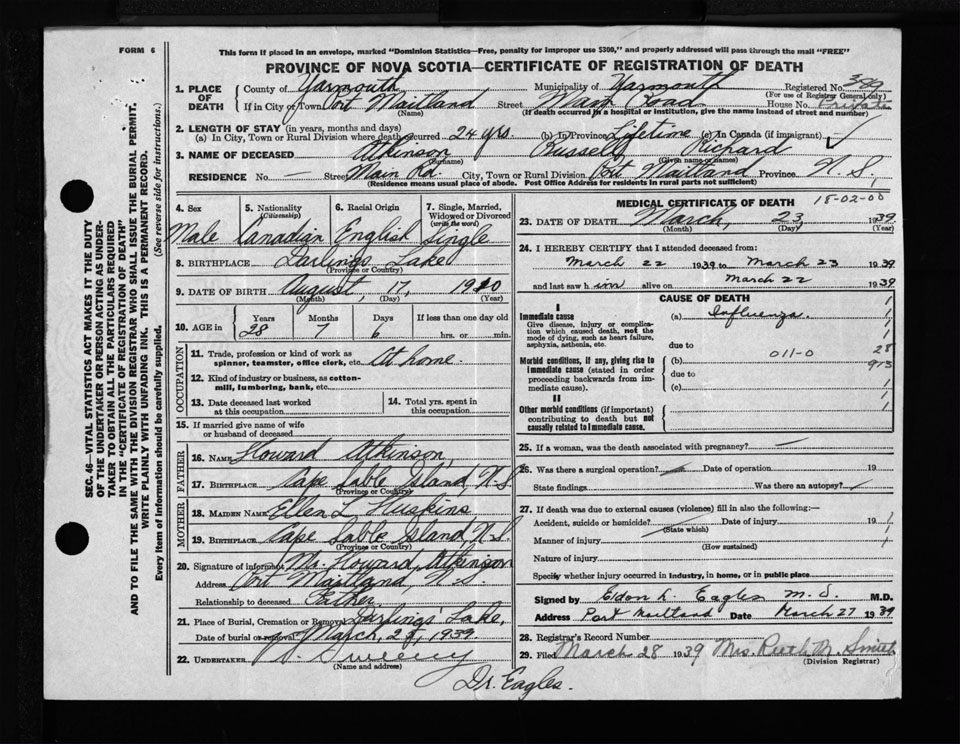 FORM 6
This form if placed in an envelope, marked "Dominion Statistics—Free, penalty for improper use $300," and properly addressed will pass through the mail "FREE"
PROVINCE OF NOVA SCOTIA—CERTIFICATE OF REGISTRATION OF DEATH
SEC. 46—VITAL STATISTICS ACT MAKES IT THE DUTY
OF THE UNDERTAKER OR PERSON ACTING AS UNDER-
TAKER TO OBTAIN ALL THE PARTICULARS REQUIRED
IN THE "CERTIFICATE OF REGISTRATION OF DEATH"
AND TO FILE THE SAME WITH THE DIVISION REGISTRAR WHO SHALL ISSUE THE BURIAL PERMIT.
WRITE PLAINLY WITH UNFADING INK. THIS IS A PERMANENT RECORD.
Every item of information should be carefully supplied. (See reverse side for instructions.)
1. PLACE OF DEATH
County of Yarmouth Municipality of Yarmouth Registered No. 389
(For use of Registrar General only)
If in City or Town Port Maitland Street Main Road House No. Private
(Name) (If death occurred in a hospital or institution, give the name instead of street and number)
2. LENGTH OF STAY (in years, months and days)
(a) In City, Town or Rural Division where death occurred 24 yrs. (b) In Province Lifetime (c) In Canada (if immigrant)
3. NAME OF DECEASED Atkinson Russell Richard
(Surname) (Given name or names)
RESIDENCE No. — Street Main Rd. City, Town or Rural Division Port Maitland Province N. S.
(Residence means usual place of abode. Post Office Address for residents in rural parts not sufficient)
4. Sex 5. Nationality (Citizenship) 6. Racial Origin 7. Single, Married, Widowed or Divorced (write the word)
Male Canadian English Single
8. BIRTHPLACE Darling's Lake
(Province or Country)
9. DATE OF BIRTH August, 17, 1910
(Month) (Day) (Year)
10. AGE in Years Months Days If less than one day old
28 7 6 hrs. or min.
OCCUPATION
11. Trade, profession or kind of work as spinner, teamster, office clerk, etc. At home.
12. Kind of industry or business, as cotton-mill, lumbering, bank, etc.
13. Date deceased last worked at this occupation
14. Total yrs. spent in this occupation
15. If married give name of wife or husband of deceased
FATHER
16. NAME Howard Atkinson
17. BIRTHPLACE Cape Sable Island, N. S.
(Province or Country)
MOTHER
18. MAIDEN NAME Ellen L Huskins
19. BIRTHPLACE Cape Sable Island, N. S.
(Province or Country)
20. Signature of informant Mr. Howard Atkinson
Address Port Maitland, N. S.
Relationship to deceased Father
21. Place of Burial, Cremation or Removal Darling's Lake,
Date of burial or removal March, 1939.
22. UNDERTAKER Sweeny
(Name and address)
Dr. Eagles.
MEDICAL CERTIFICATE OF DEATH 18-02-00
23. DATE OF DEATH March, 23, 1939
(Month) (Day) (Year)
24. I HEREBY CERTIFY that I attended deceased from:
March 22 1939 to March 23 1939
and last saw him alive on March 22 1939
CAUSE OF DEATH
I
Immediate cause (a) Influenza.
Give disease, injury or complication which caused death, not the mode of dying, such as heart failure, asphyxia, asthenia, etc.
due to
Morbid conditions, if any, giving rise to immediate cause (stated in order proceeding backwards from immediate cause).
(b) 011-0 28
due to 973
(c)
II
Other morbid conditions (if important) contributing to death but not causally related to Immediate cause.
25. If a woman, was the death associated with pregnancy? —
26. Was there a surgical operation? — Date of operation 19
State findings Was there an autopsy?
27. If death was due to external causes (violence) fill in also the following:—
Accident, suicide or homicide? Date of injury 19
(State which)
Manner of injury
(How sustained)
Nature of injury
Specify whether injury occurred in industry, in home, or in public place
Signed by Eldon L. Eagles M.D.
Address Port Maitland Date March 27 1939
28. Registrar's Record Number
29. Filed March 28 1939 Mrs. Ruth M. Smith
(Division Registrar)